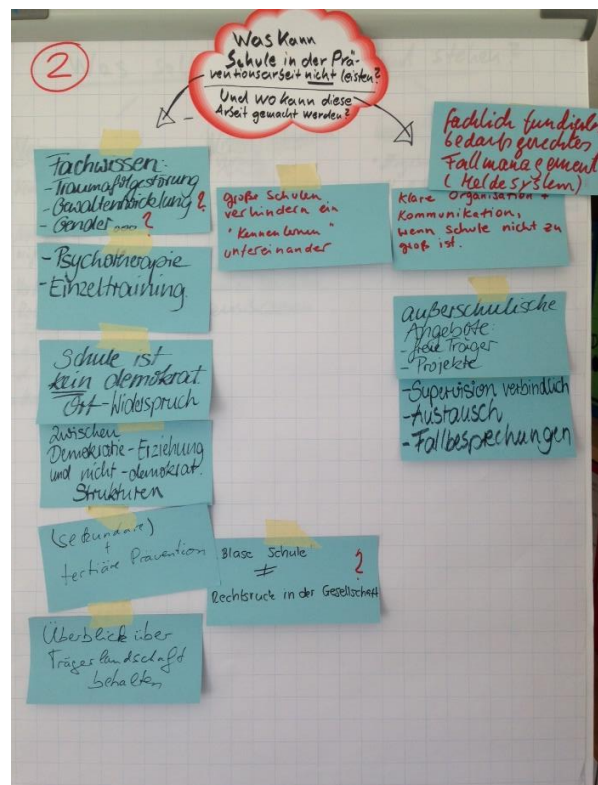 2
Was Kann
Schule in der Prä-
ventionsarbeit nicht leisten?
Und wo kann diese
Arbeit gemacht werden?
Fachwissen:
-Traumafolgestörung
-Gewaltentwicklung ?
-Gender.... ?
-Psychotherapie
-Einzeltraining
Schule ist
kein demokrat.
Ort-Widerspruch
zwischen
Demokratie-Erziehung
und nicht-demokrat.
Strukturen
(sekundäre)
+
tertiäre Prävention
Überblick über
Trägerlandschaft
behalten
große Schulen
verhindern ein
"Kennenlernen"
untereinander
Blase Schule ?
≠
Rechtsruck in der Gesellschaft
fachlich fundiertes
bedarfsgerechtes
Fallmanagement
(Meldesystem)
klare Organisation +
Kommunikation,
wenn Schule nicht zu
groß ist.
außerschulische
Angebote:
-freie Träger
-Projekte
-Supervision verbindlich
-Austausch
-Fallbesprechungen